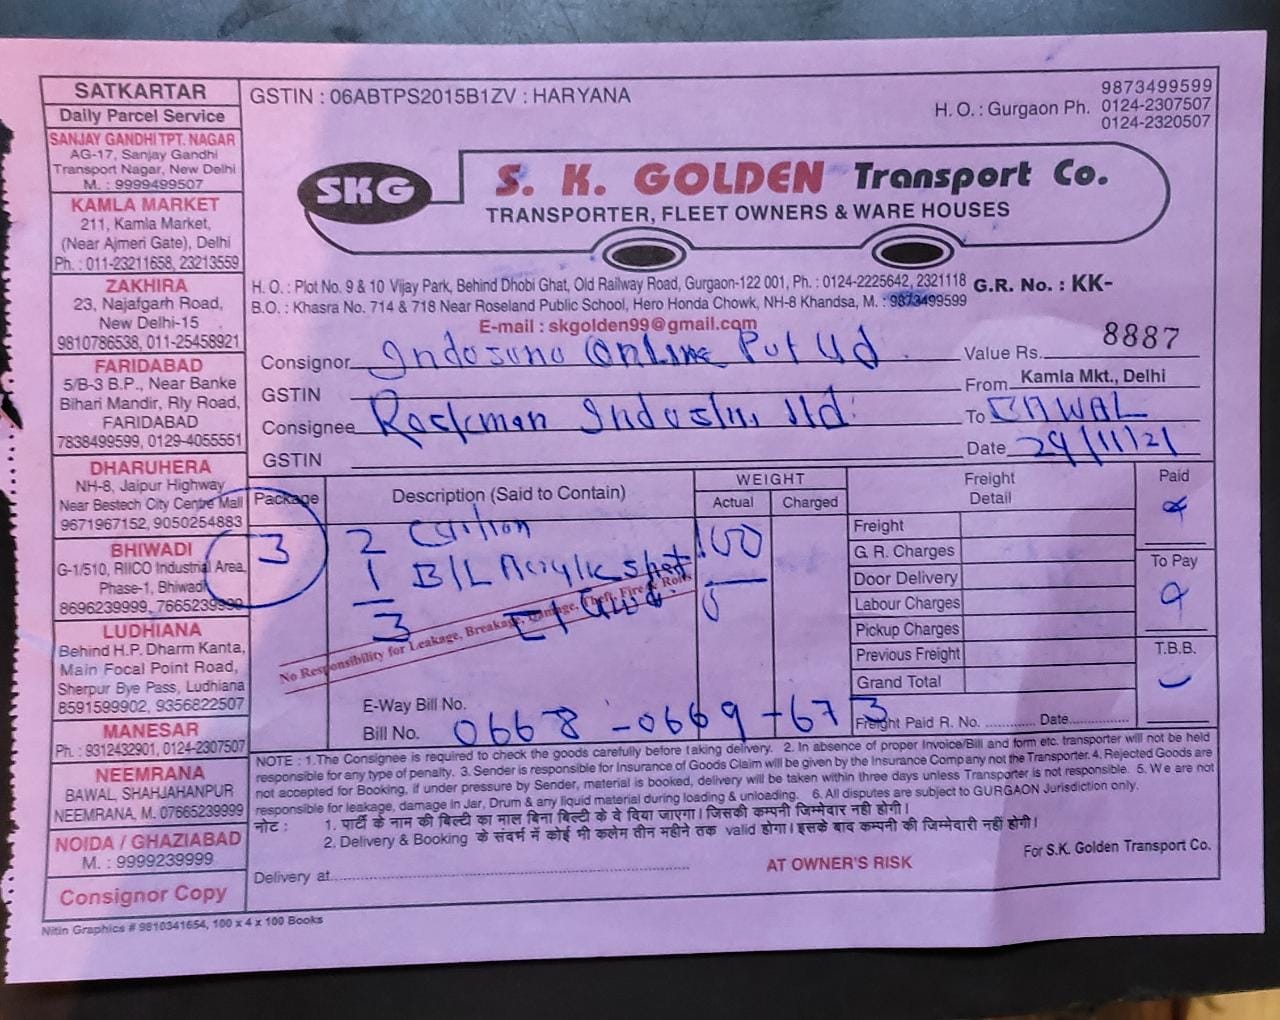 SATKARTAR
Daily Parcel Service
SANJAY GANDHI TPT. NAGAR
AG-17, Sanjay Gandhi
Transport Nagar, New Delhi
M. : 9999499507
KAMLA MARKET
211, Kamla Market,
(Near Ajmeri Gate), Delhi
Ph. : 011-23211658, 23213559
ZAKHIRA
23, Najafgarh Road,
New Delhi-15
9810786538, 011-25458921
FARIDABAD
5/B-3 B.P., Near Banke
Bihari Mandir, Rly Road,
FARIDABAD
7838499599, 0129-4055551
DHARUHERA
NH-8, Jaipur Highway
Near Bestech City Centre Mall
9671967152, 9050254883
BHIWADI
G-1/510, RIICO Industrial Area,
Phase-1, Bhiwadi
8696239999, 7665239999
LUDHIANA
Behind H.P. Dharm Kanta,
Main Focal Point Road,
Sherpur Bye Pass, Ludhiana
8591599902, 9356822507
MANESAR
Ph. : 9312432901, 0124-2307507
NEEMRANA
BAWAL, SHAHJAHANPUR
NEEMRANA, M. 07665239999
NOIDA / GHAZIABAD
M. : 9999239999
Consignor Copy
GSTIN : 06ABTPS2015B1ZV : HARYANA
9873499599
H. O. : Gurgaon Ph. 0124-2307507
0124-2320507
SKG
S. K. GOLDEN Transport Co.
TRANSPORTER, FLEET OWNERS & WARE HOUSES
H. O. : Plot No. 9 & 10 Vijay Park, Behind Dhobi Ghat, Old Railway Road, Gurgaon-122 001, Ph. : 0124-2225642, 2321118
B.O. : Khasra No. 714 & 718 Near Roseland Public School, Hero Honda Chowk, NH-8 Khandsa, M. : 9873499599
G.R. No. : KK-
E-mail : skgolden99@gmail.com
8887
Consignor Online Pvt Ltd.
Value Rs.
GSTIN
From Kamla Mkt., Delhi
Consignee Rockman Ltd.
To BAWAL
GSTIN
Date 29/11/21
Package
Description (Said to Contain)
WEIGHT
Actual Charged
Freight Detail
Paid
3
2 Carton
1 B/L Acrylic
3
100
No Responsibility for Leakage, Breakage, Damage, Theft, Fire & Riots
Freight
G. R. Charges
Door Delivery
Labour Charges
Pickup Charges
Previous Freight
Grand Total
To Pay
T.B.B.
E-Way Bill No.
Bill No. 0668-0669-673
Freight Paid R. No. ............ Date..............
NOTE : 1.The Consignee is required to check the goods carefully before taking delivery. 2. In absence of proper Invoice/Bill and form etc. transporter will not be held
responsible for any type of penalty. 3. Sender is responsible for Insurance of Goods Claim will be given by the Insurance Company not the Transporter. 4. Rejected Goods are
not accepted for Booking, if under pressure by Sender, material is booked, delivery will be taken within three days unless Transporter is not responsible. 5. We are not
responsible for leakage, damage in Jar, Drum & any liquid material during loading & unloading. 6. All disputes are subject to GURGAON Jurisdiction only.
नोट : 1. पार्टी के नाम की बिल्टी का माल बिना बिल्टी के दे दिया जाएगा। जिसकी कम्पनी जिम्मेदार नही होगी।
2. Delivery & Booking के संदर्भ में कोई भी कलेम तीन महीने तक valid होगा। इसके बाद कम्पनी की जिम्मेदारी नहीं होगी।
For S.K. Golden Transport Co.
Delivery at
AT OWNER'S RISK
Nitin Graphics # 9810341654, 100 x 4 x 100 Books